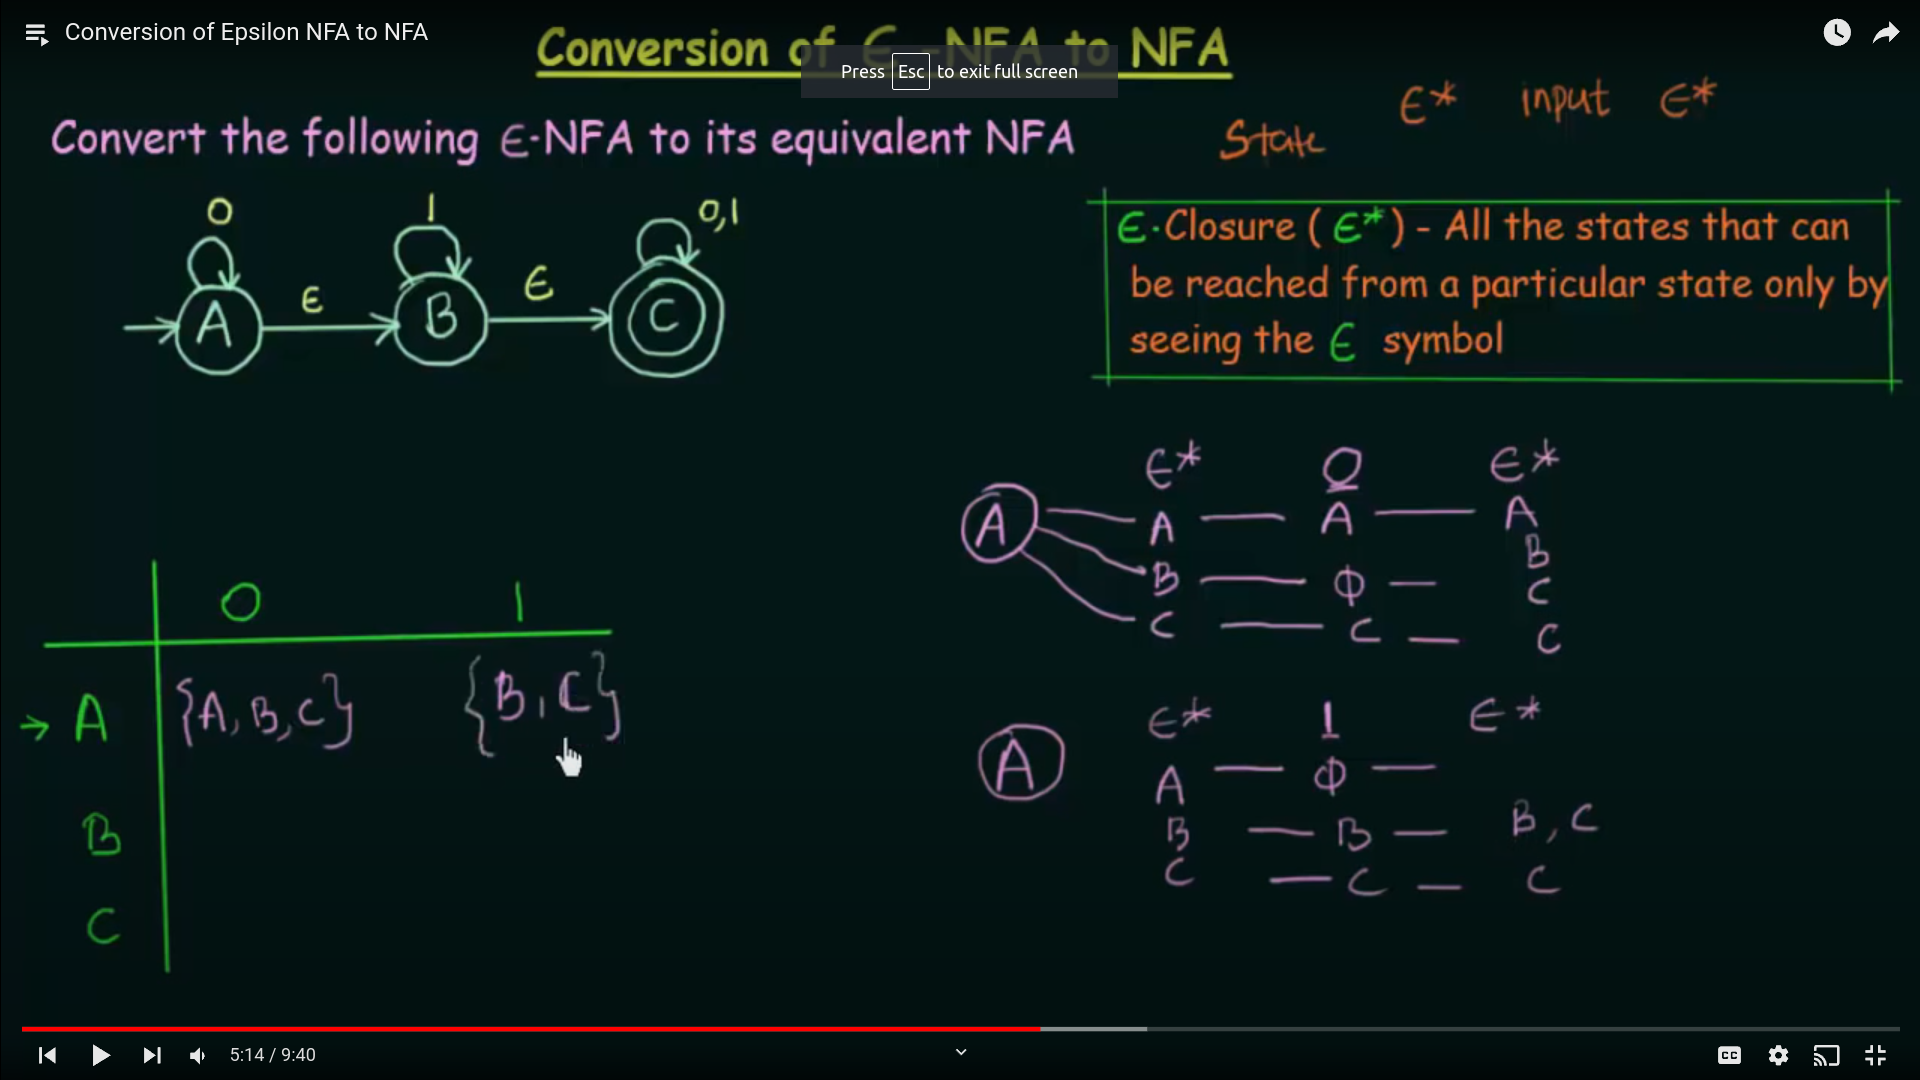 Conversion of Epsilon NFA to NFA
Conversion of ϵ-NFA to NFA
Press Esc to exit full screen
Convert the following ϵ-NFA to its equivalent NFA
State ϵ* input ϵ*
0 1 0,1
ϵ ϵ
A B C
ϵ-Closure ( ϵ* ) - All the states that can
be reached from a particular state only by
seeing the ϵ symbol
ϵ* 0 ϵ*
A A A A
B
B Φ C
C C C
0 1
A {A, B, C} {B, C}
B
C
ϵ* 1 ϵ*
A A Φ
B B B, C
C C C
5:14 / 9:40
CC